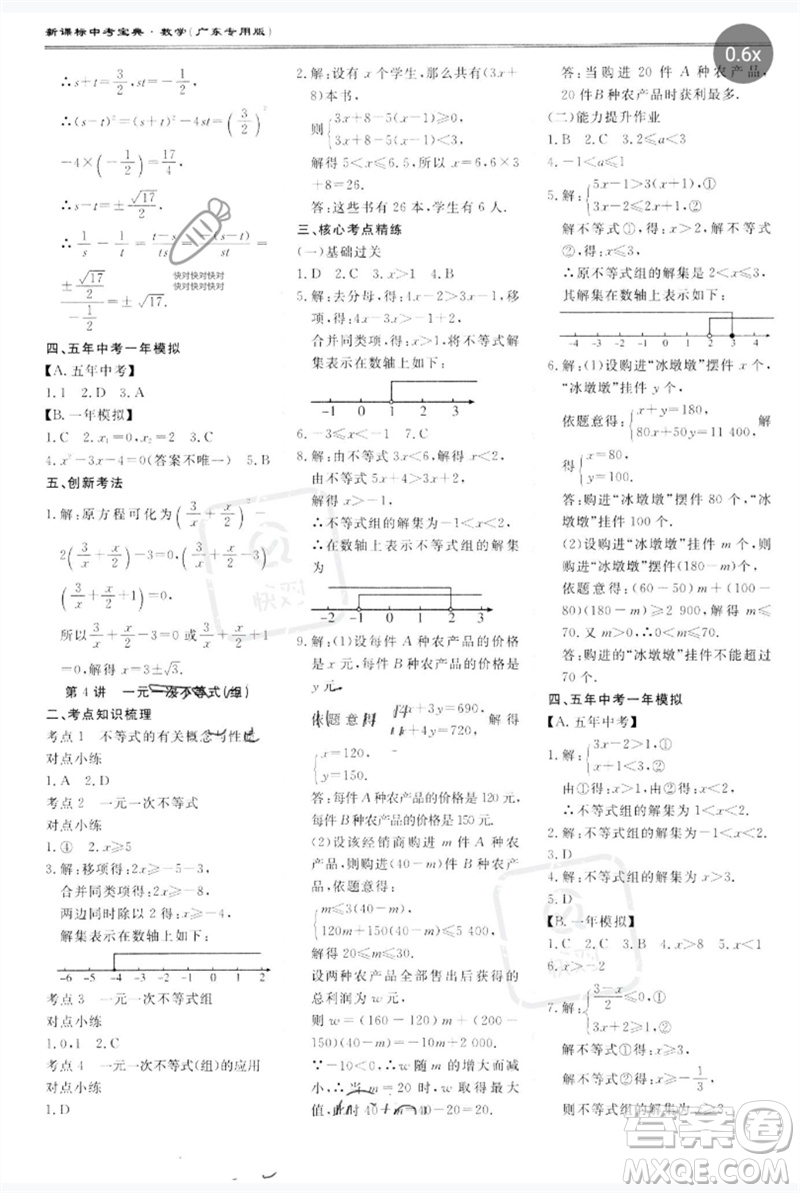 新课标中考宝典·数学(广东专用版)
0.6x
∴s+t=3/2,
∴(s-t)²=(s+t)²-4st=(3/2)²
-4×(-1/2)=17/4
∴s-t=±√17/2,
∴1/s-1/t=(t-s)/ts=-(s-t)/st=
±(√17/2)/(-1/2)=±√17.
四、五年中考一年模拟
【A. 五年中考】
1. 1 2. D 3. A
【B. 一年模拟】
1. C 2. x₁=0,x₂=2 3. C
4. x²-3x-4=0(答案不唯一) 5. B
五、创新考法
1. 解:原方程可化为(3/x+x/2)²-
2(3/x+x/2)-3=0,
(3/x+x/2+1)(3/x+x/2-3)=0,
所以3/x+x/2=3或3/x+x/2+1
=0,
解得x=3±√3.
第4讲 一元一次不等式(组)
二、考点知识梳理
考点1 不等式的有关概念
对点小练
1. A 2. D
考点2 一元一次不等式
对点小练
1. ④ 2. x≥5
3. 解:移项得:2x≥-5-3,
合并同类项得:2x≥-8,
两边同时除以2得:x≥-4,
解集在数轴上表示如下:
-6 -5 -4 -3 -2 -1 0 1 2
考点3 一元一次不等式组
对点小练
1. 0,1 2. C
考点4 一元一次不等式(组)的应用
对点小练
1. D
2. 解:设有x个学生,那么共有(3x+
8)本书,
则{3x+8-5(x-1)≥0,
3x+8-5(x-1)<3,
解得5<x≤6.5,所以x=6,6×3
+8=26.
答:这些书有26本,学生有6人.
三、核心考点精练
(一)基础过关
1. D 2. C 3. x>1 4. B
5. 解:去分母,得:4x-2>3x-1,移
项,得:4x-3x>-1+2,
合并同类项,得:x>1,将不等式解
集表示在数轴上如下:
-1 0 1 2 3
6. -3≤x<-1 7. C
8. 解:由不等式3x-6≤x,解得:
x≤3,
由不等式
∴不等式组的解集为-1<x
∴在数轴上表示不等式组的解集
为
-3 -2 -1 0 1 2 3
9. 解:(1)设每件A种农产品的价格
是x元,每件B种农产品的价格是
y元,
依题意得 x+3y=690, 解得
x+4y=720,
{x=120,
y=150.
答:每件A种农产品的价格是120元,
每件B种农产品的价格是150元.
(2)设该经销商购进m件A种农
产品,则购进(40-m)件B种农产
品,依题意得:
{m≤3(40-m),
120m+150(40-m)≤5 400,
解得20≤m≤30.
设两种农产品全部售出后获得的
总利润为w元,
则w=(160-120)m+(200-
150)(40-m)=-10m+2 000.
∵-10<0,∴w随m的增大而减
小,∴当m=20时,w取得最大
值,此时40-m=40-20=20.
答:当购进20件A种农产品,
20件B种农产品时获利最多.
(二)能力提升作业
1. B 2. D 3. 2≤a<3
4. -1<a≤1
5. 解:{5x-1>3(x+1),①
3x-2≤x+4,②
解不等式①得:x>2,
解不等式②得:x≤3,
∴原不等式组的解集为2<x≤3,
其解集在数轴上表示如下:
-4 -3 -2 -1 0 1 2 3 4 5
6. 解:(1)设购进“冰墩墩”摆件x个,
“冰墩墩”挂件y个,
依题意得:{x+y=180,
80x+50y=11 400. 解
得{x=80,
y=100.
答:购进“冰墩墩”摆件80个,“冰墩
墩”挂件100个.
(2)设购进“冰墩墩”挂件m个,则
购进“冰墩墩”摆件(180-m)个,
依题意得:(60-50)m+(100-
80)(180-m)≥2 900,解得m≤
70.又m>0,∴0<m≤70.
答:购进的“冰墩墩”挂件不能超过
70个.
四、五年中考一年模拟
【A. 五年中考】
1. 解:{3x-2>1,①
x+1<3,②
由①得:x>1,由②得:x<2,
∴不等式组的解集为1<x<2.
2. 解:不等式组的解集为-1<x<2.
3. D
4. 解:不等式的解集为x<6.
5. D
【B. 一年模拟】
1. C 2. C 3. D 4. x>8 5. C
6. x>-1
7. 解:{(3-x)/2≤0,①
3x+2≥1,②
解不等式①得x≥3,
解不等式②得x≥-1/3,
则不等式组的解集为x≥3.